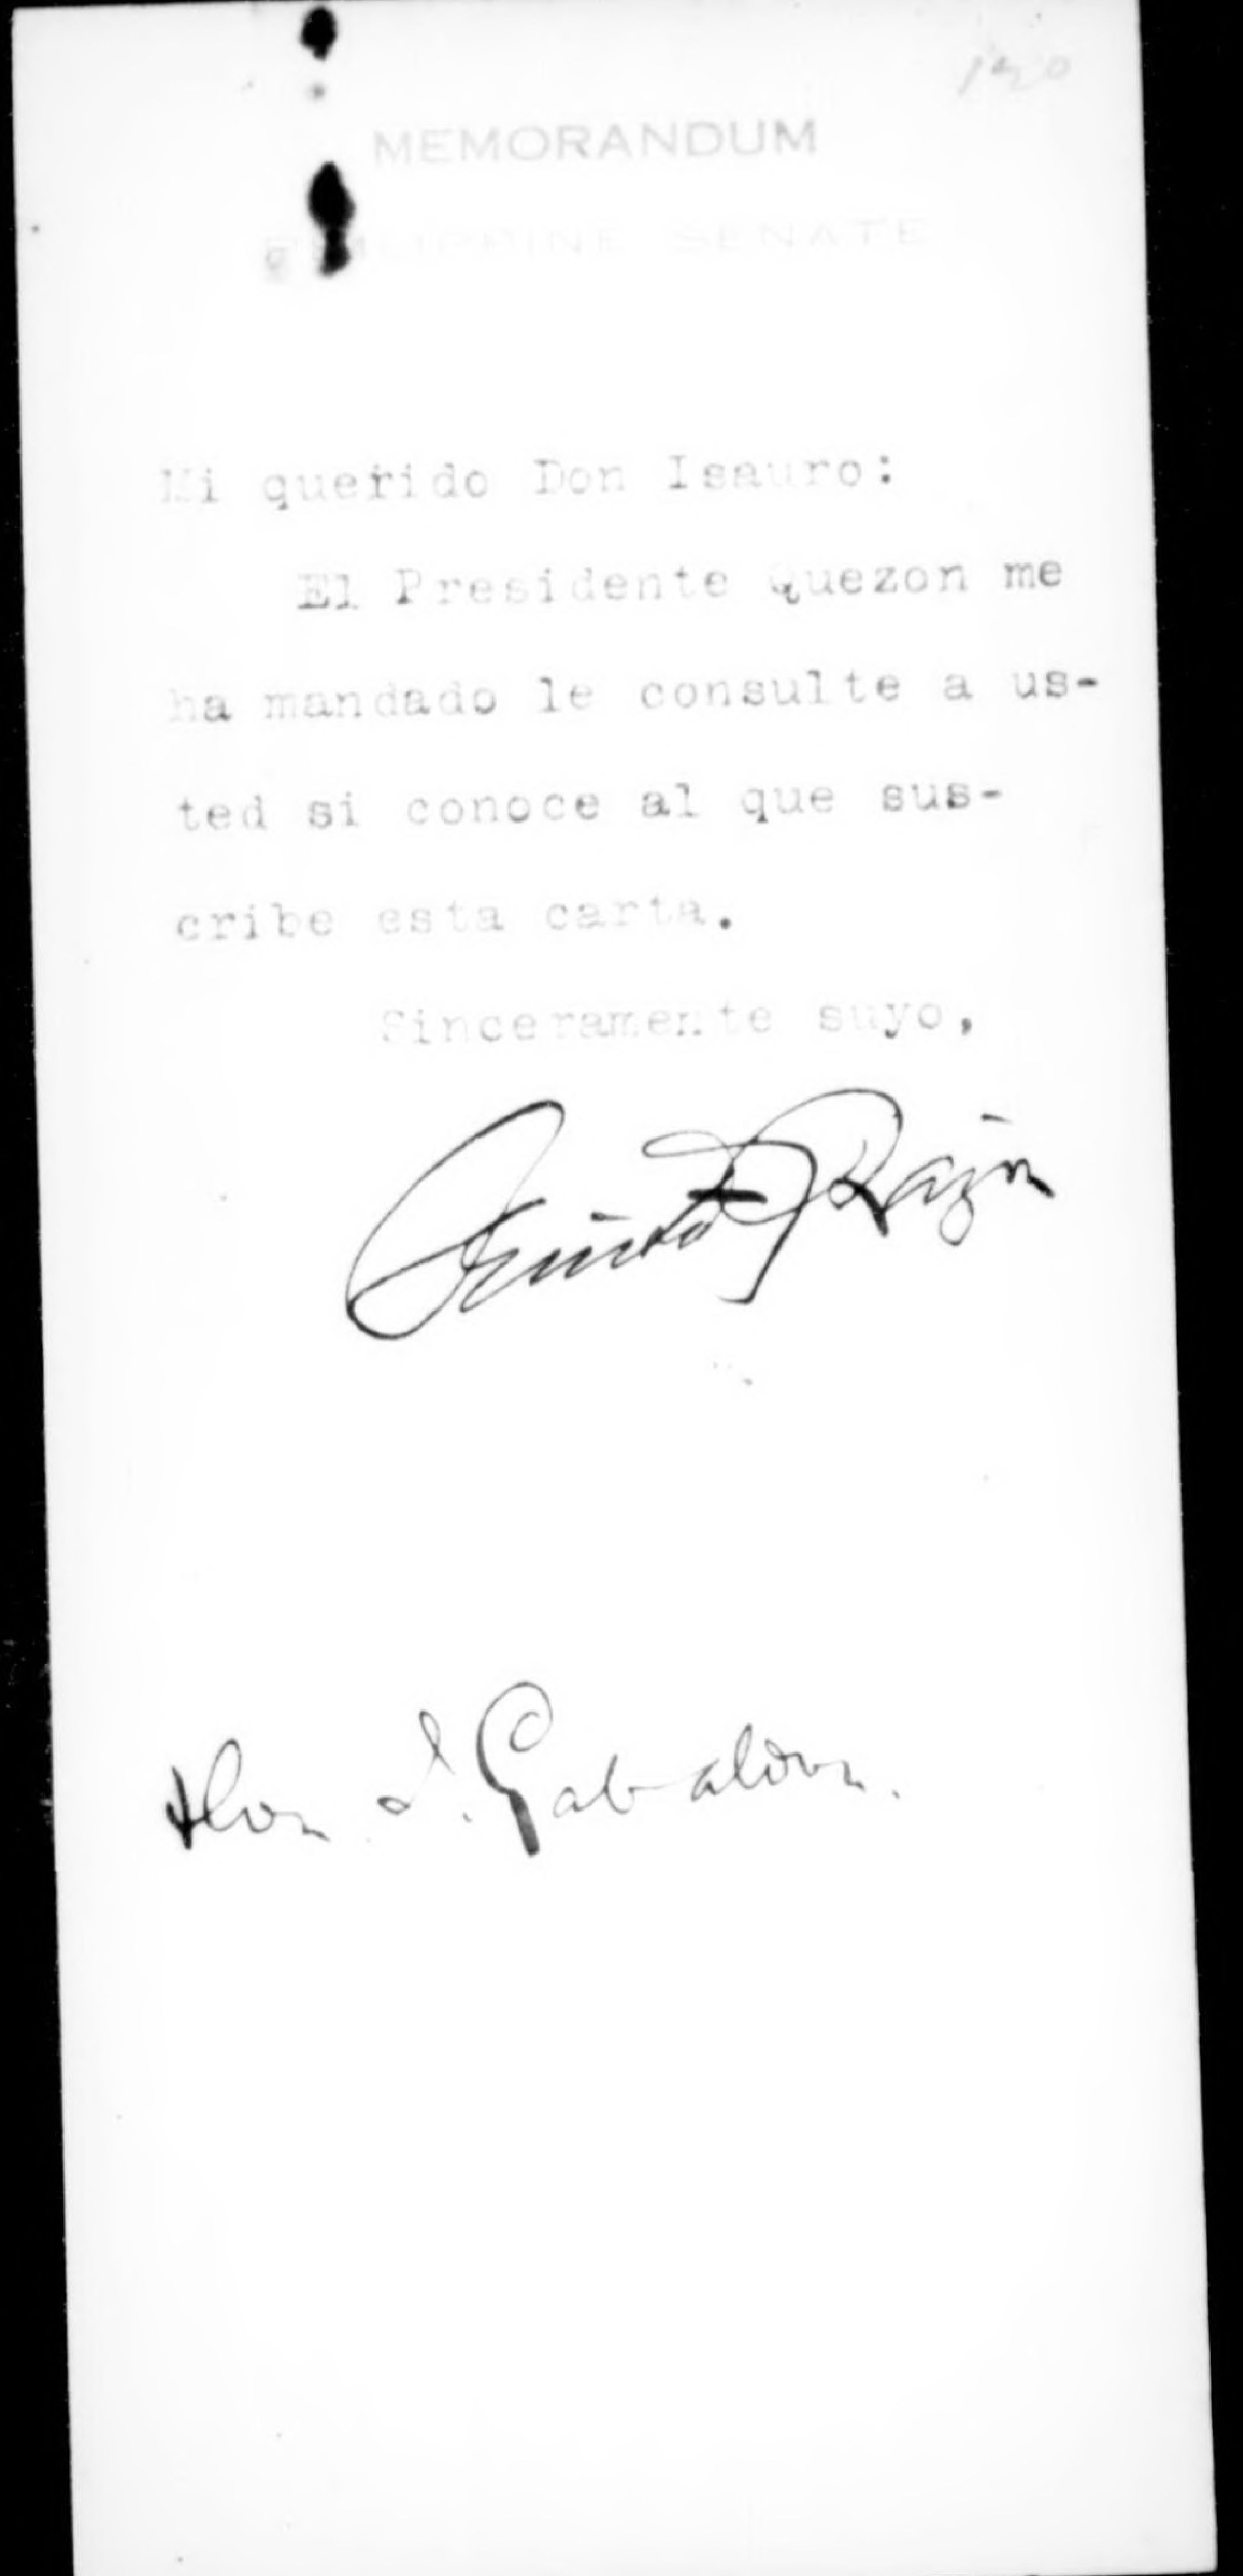 MEMORANDUM
PHILIPPINE SENATE
Mi querido Don Isauro:
El Presidente Quezon me
ha mandado le consulte a us-
ted si conoce al que sus-
cribe esta carta.
Sinceramente suyo,
Razón
Hon. I. Gabaldon.